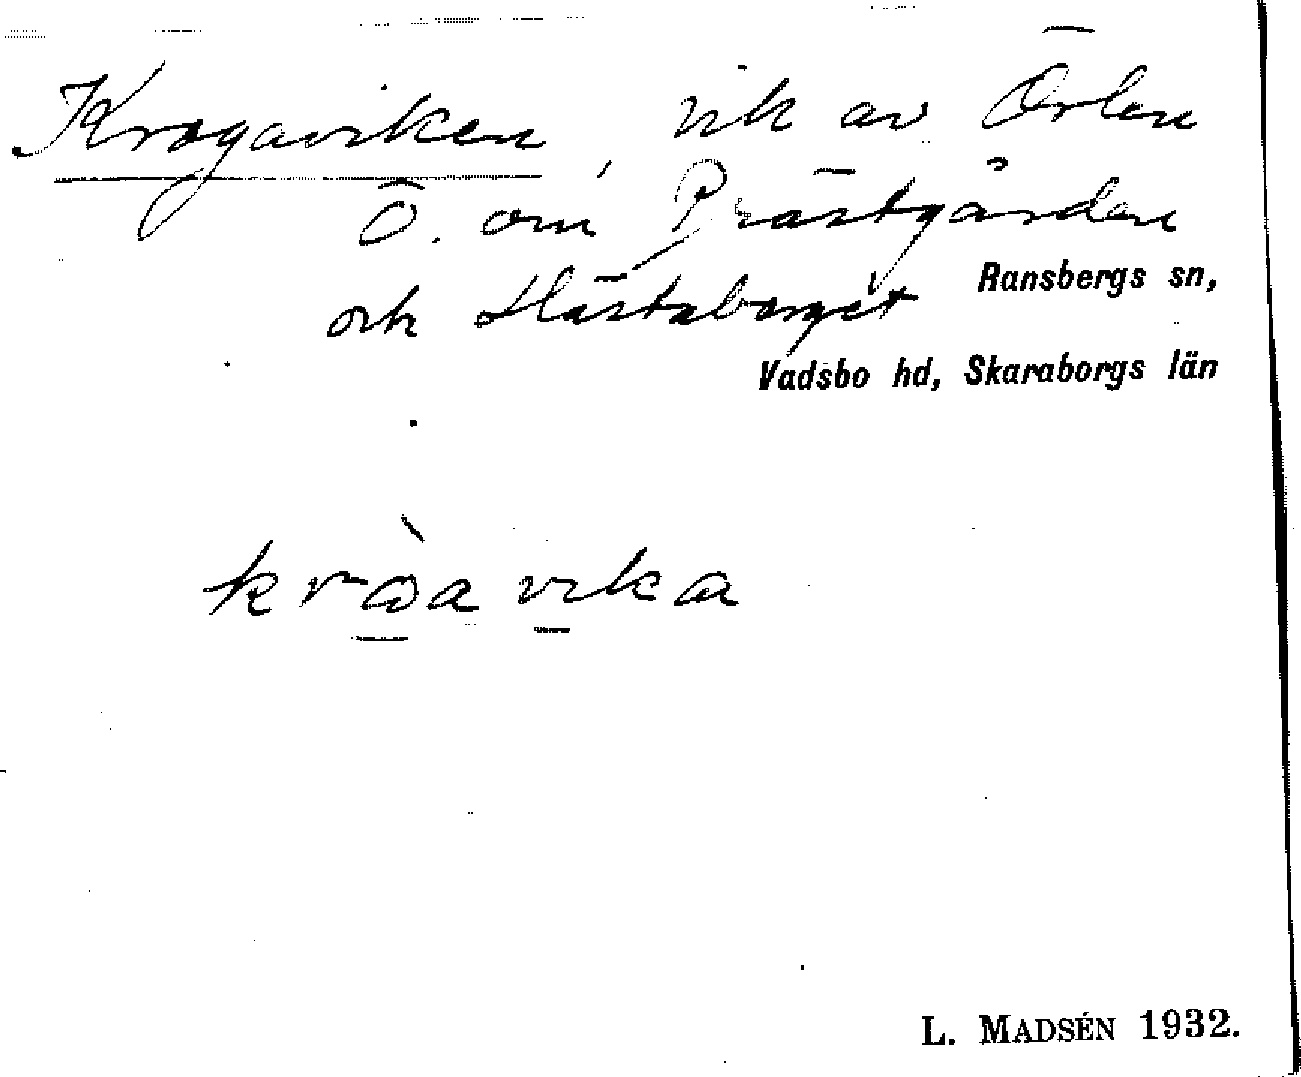 Krogaviken, vik av Örlen
Ö. om Prästgården
och Hästaberget
Ransbergs sn,
Vadsbo hd, Skaraborgs län
L. MADSÉN 1932.